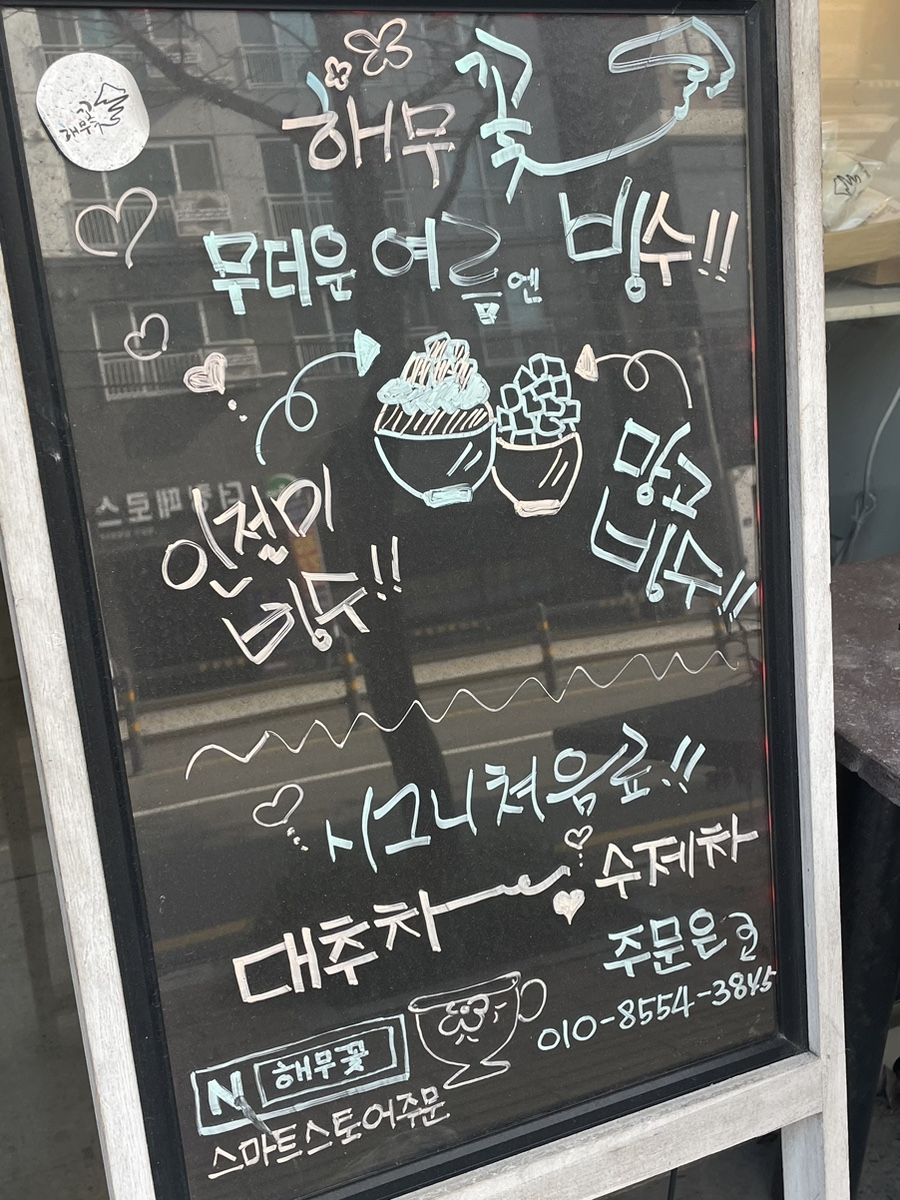 해무꽃
해무꽃
무더운 여름엔 빙수!!
인절미
빙수!!
망고
빙수!!
시그니쳐 음료!!
대추차
수제차
주문은
010-8554-3845
N 해무꽃
스마트스토어주문